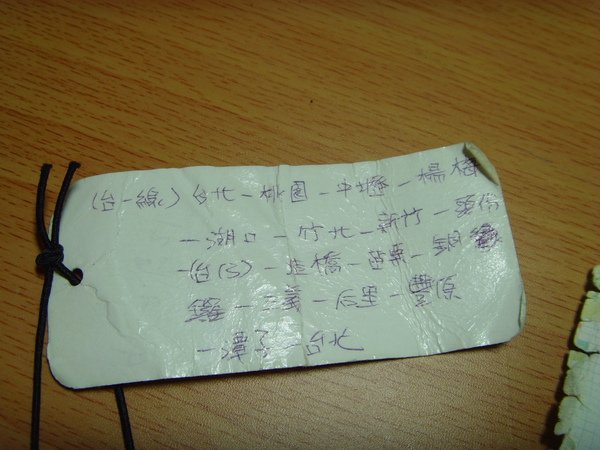 (台一線) 台北－桃園－中壢－楊梅
－湖口－竹北－新竹－頭份
－(台13)－造橋－苗栗－銅
鑼－三義－后里－豐原
－潭子－台北